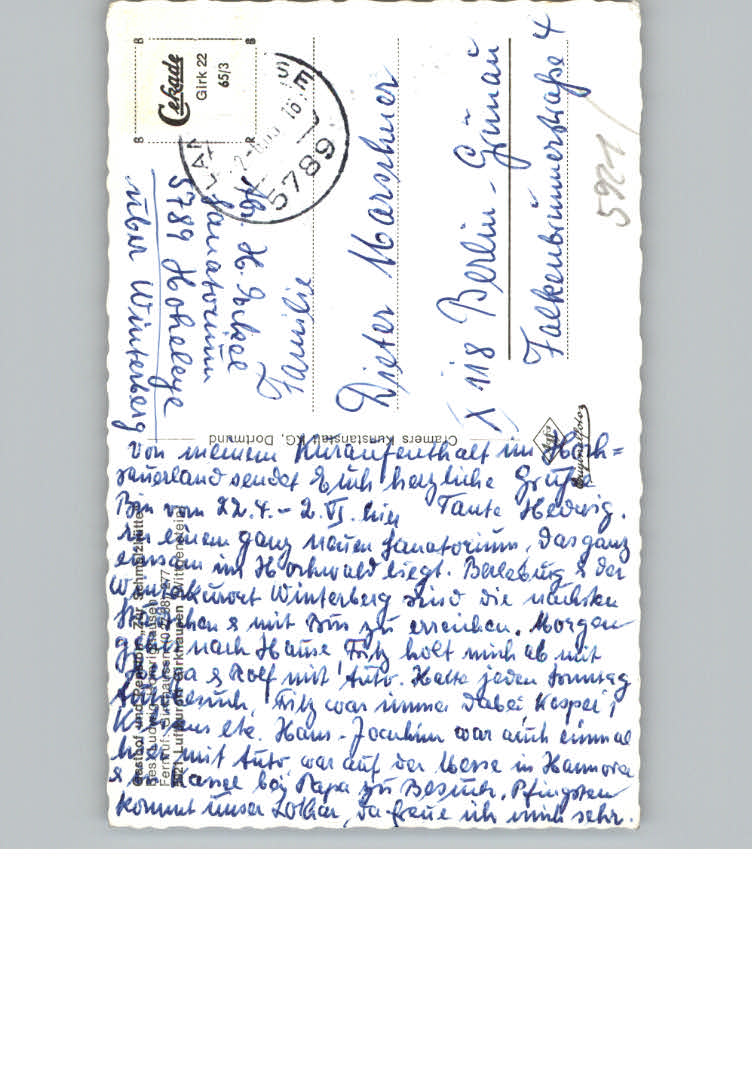 Von meinem Kuraufenthalt im Hoch=
sauerland sendet Euch herzliche Grüße
Bin vom 22.4. - 2.VI. hier Tante Hedwig.
In einem ganz neuen Sanatorium, das ganz
einsam im Hochwald liegt. Berleburg & der
Winterkurort Winterberg sind die nächsten
Städtchen & mit Bus zu erreichen. Morgen
geht's nach Hause Fritz holt mich ab mit
& Rolf mit Auto. Hatte jeden Sonntag
Besuch, Fritz war immer dabei
etc. Hans-Joachim war auch einmal
hier mit Auto, war auf der Messe in Hannover
& in Kassel bei Papa zu Besuch. Pfingsten
kommt unser Lothar, da freue ich mich sehr.
Gasthof und Pension „Zur Schmelzhütte"
Luftkurort Girkhausen (Wittgenstein)
Cramers Kunstanstalt KG, Dortmund
Cekade
Girk 22
65/3
5789
Sanatorium
5789 Hoheleye
über Winterberg
Familie
Dieter Marschner
X 118 Berlin - Grünau
Falkenbrunnerstraße 4
5921
Agfa
Originalfoto